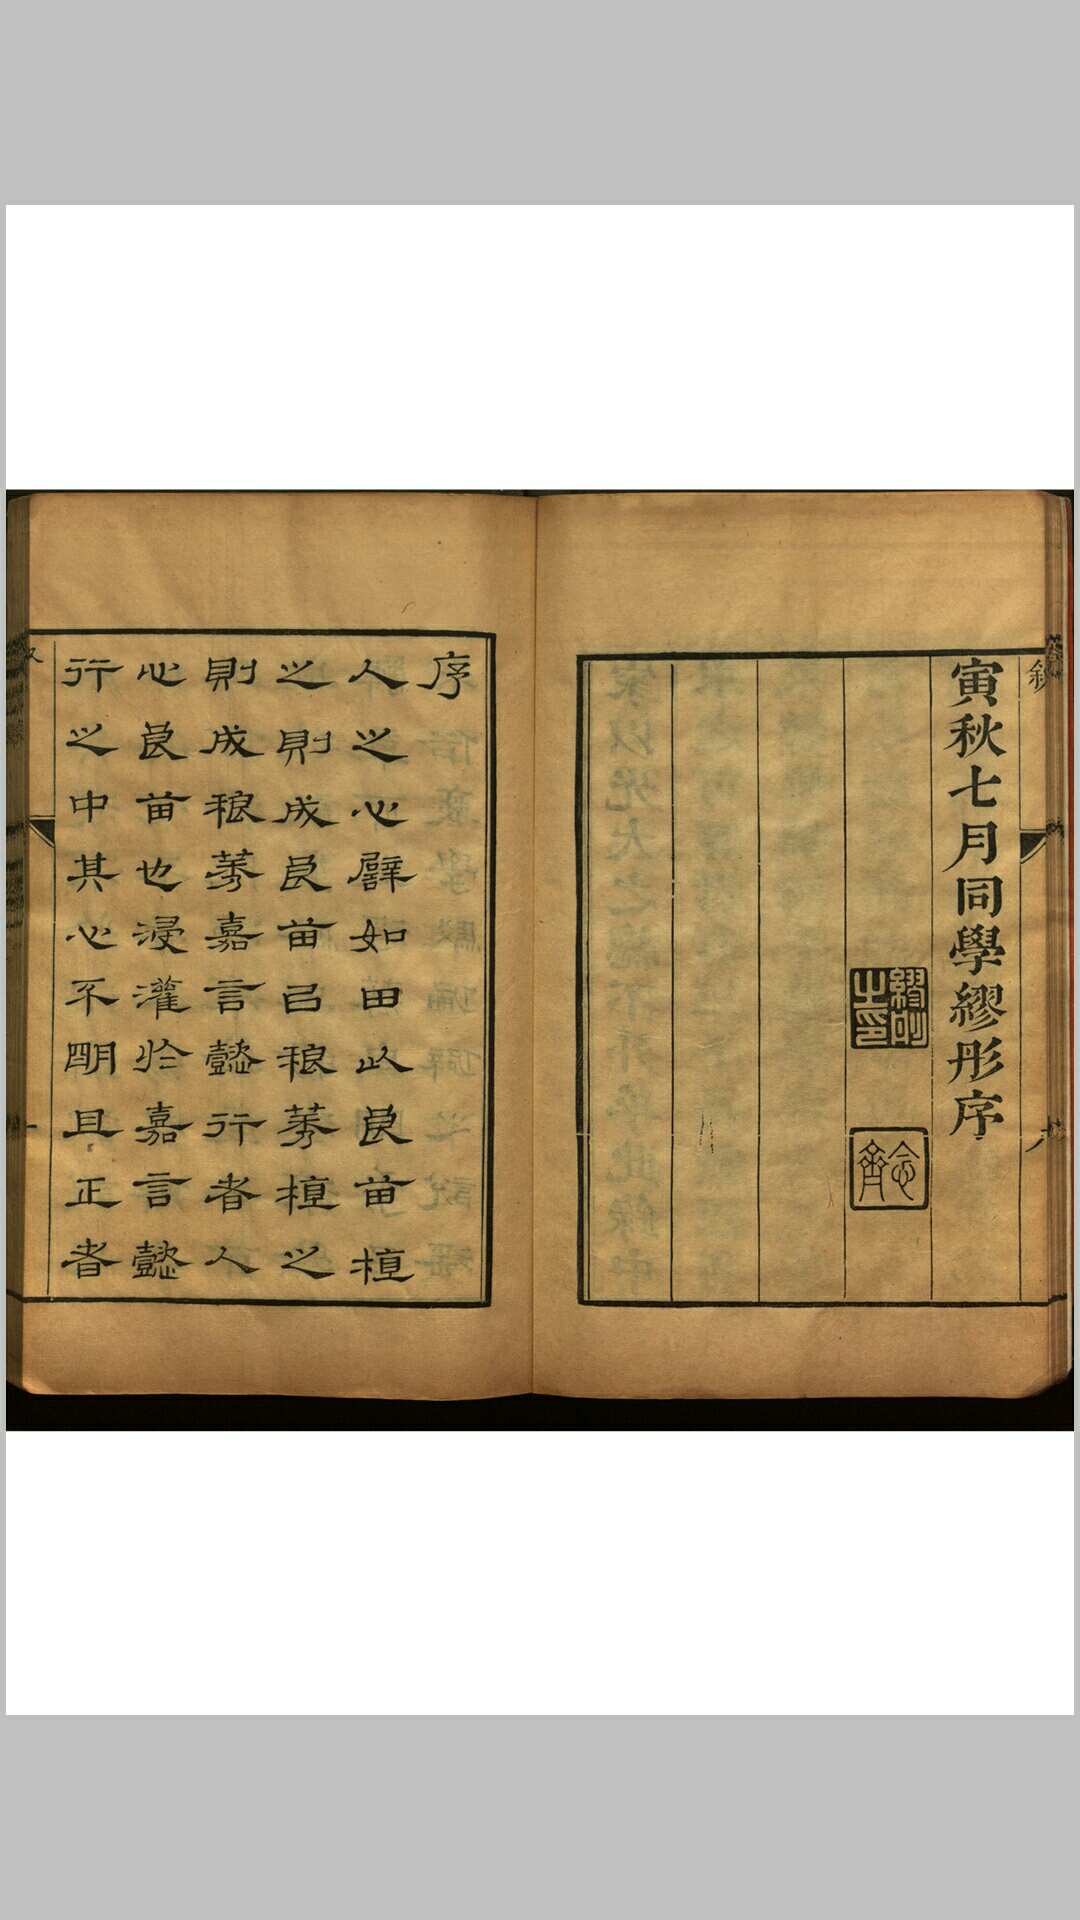 敘
寅秋七月同學繆彤序
繆彤之印
念齋
序
人之心辟如田以良苗植
之則成良苗㠯稂莠植之
則成稂莠嘉言懿行者人
心良苗也浸灌於嘉言懿
行之中其心不明且正者